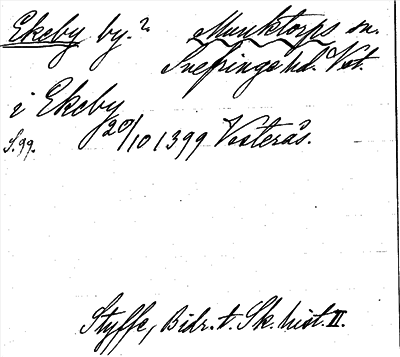 Ekeby by.² Munktorps sn.
Snefringe hd. Vst.
i Ekeby
20/10 1399 Vesterås.
S. 99.
Styffe, Bidr. t. Sk. hist. II.